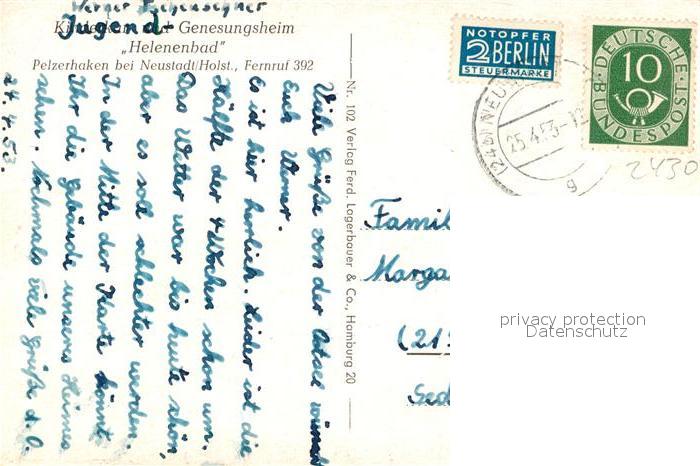 Werner
Jugend-
Kinderkur- und Genesungsheim
„Helenenbad"
Pelzerhaken bei Neustadt/Holst., Fernruf 392
Viele Grüße von der Ostsee wünscht
Euch Werner.
Es ist hier herlich. Leider ist die
Hälfte der 4 Wochen schon um.
Das Wetter war bis heute schön,
aber es soll schlechter werden.
In der Mitte der Karte könnt
Ihr die Gebäude unseres Heimes
sehen. Nochmals viele Grüße d. O.
24.4.53.
Nr. 102 Verlag Ferd. Lagerbauer & Co., Hamburg 20
NOTOPFER
2 BERLIN
STEUERMARKE
DEUTSCHE
10
BUNDESPOST
(24b) NEU
25.4.53-12
g
2430
Famil
Marga
(21
privacy protection
Datenschutz